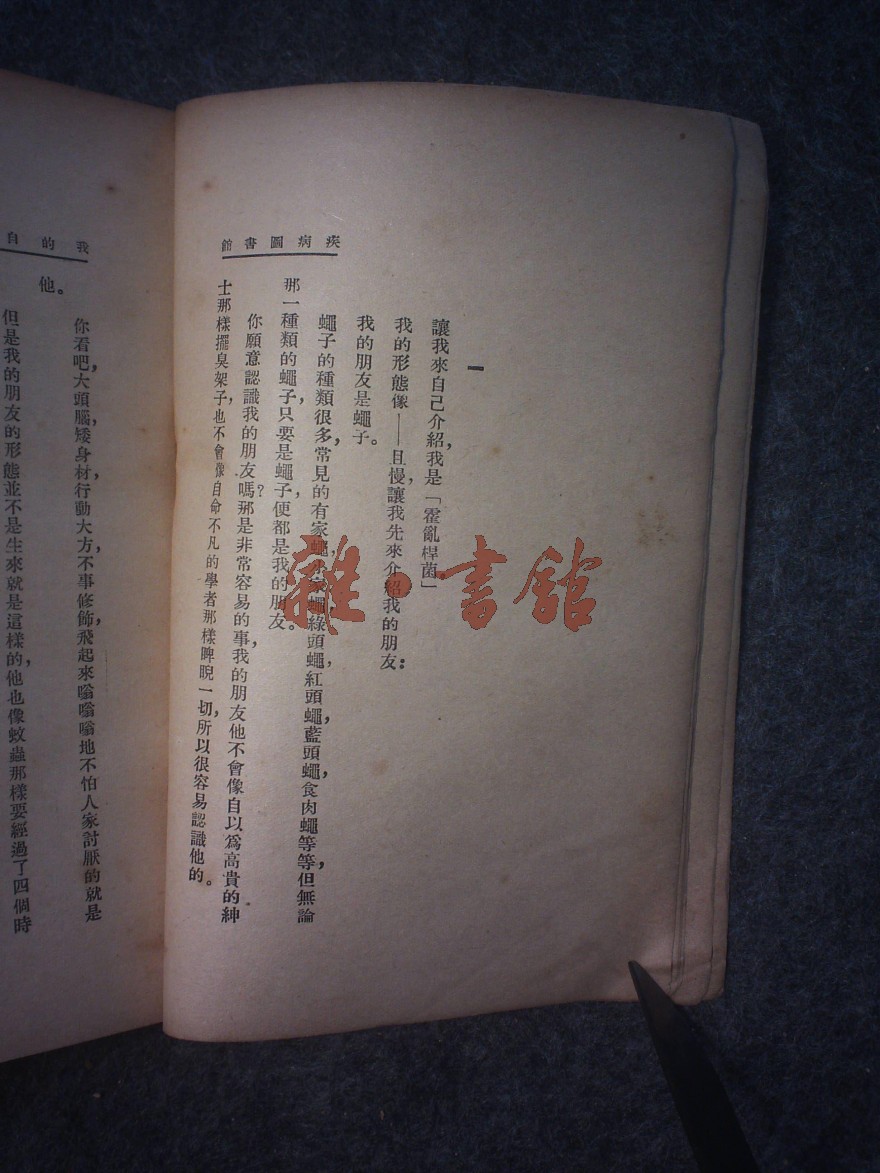 疾病圖書館
一
讓我來自己介紹，我是「霍亂桿菌」。
我的形態像——且慢，讓我先來介紹我的朋友：
我的朋友是蠅子。
蠅子的種類很多，常見的有家蠅，小家蠅，綠頭蠅，紅頭蠅，藍頭蠅，食肉蠅等等，但無論
那一種類的蠅子，只要是蠅子，便都是我的朋友。
你願意認識我的朋友嗎？那是非常容易的事，我的朋友他不會像自以爲高貴的紳
士那樣擺臭架子，也不會像自命不凡的學者那樣睥睨一切，所以很容易認識他的。
我的自
他。
你看吧，大頭腦，矮身材，行動大方，不事修飾，飛起來嗡嗡嗡地不怕人家討厭的就是
但是我的朋友的形態並不是生來就是這樣的，他也像蚊蟲那樣要經過了四個時
雜·書館